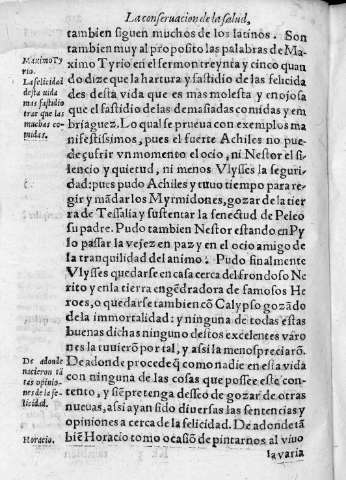 La conseruacion de la salud,
tambien siguen muchos de los latinos. Son
tambien muy al proposito las palabras de Ma-
ximo Tyrio en el sermon treynta y cinco quan
do dize que la hartura y fastidio de las felicida
des desta vida que es mas molesta y enojosa
que el fastidio de las demasiadas comidas y em
briaguez. Lo qual se prueua con exemplos ma
nifestissimos, pues el fuerte Achiles no pue-
de çufrir vn momento el ocio, ni Nestor el si-
lencio y quietud, ni menos Vlysses la seguri-
dad: pues pudo Achiles y tuuo tiempo para re-
gir y mãdar los Myrmidones, gozar de la tier
ra de Tessalia y sustentar la senectud de Peleo
su padre. Pudo tambien Nestor estando en Py
lo passar la vejez en paz y en el ocio amigo de
la tranquilidad del animo. Pudo finalmente
Vlysses quedarse en casa cerca del frondoso Ne
rito y en la tierra engẽdradora de famosos He
roes, o quedarse tambien cõ Calypso gozãdo
de la immortalidad: y ninguna de todas estas
buenas dichas ninguno destos excelentes váro
nes la tuuierõ por tal, y assi la menospreciarõ.
De adonde procede q̃ como nadie en esta vida
con ninguna de las cosas que possee este con-
tento, y siẽpre tenga desseo de gozar de otras
nueuas, assi ayan sido diuersas las sentencias y
opiniones a cerca de la felicidad. De adonde tã
biẽ Horacio tomo ocasiõ de pintarnos al viuo
la varia
Maximo Ty-
rio.
La felicidad
desta vida
mas fastidio
trae que las
muchas co-
midas.
De adonde
nacieron tã
tas opinio-
nes de la fe-
licidad.
Horacio.